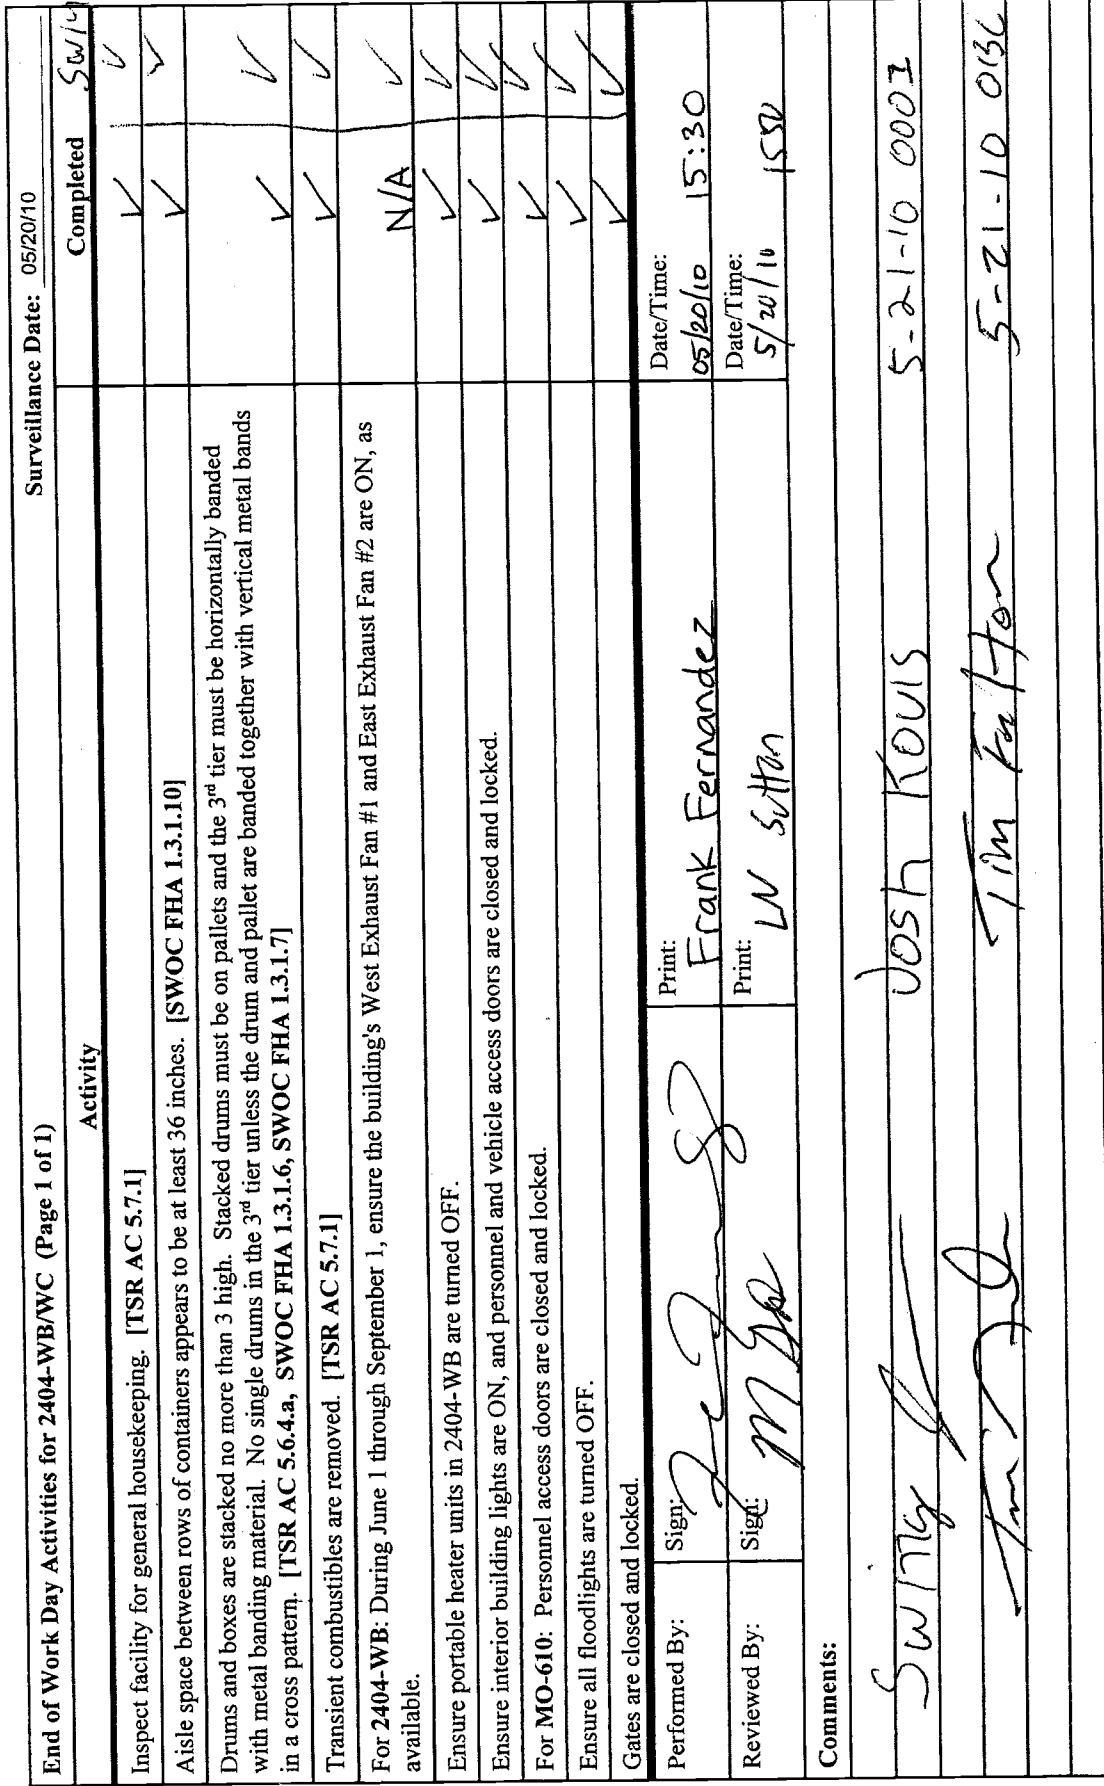 End of Work Day Activities for 2404-WB/WC (Page 1 of 1) Surveillance Date: 05/20/10
Activity Completed
Inspect facility for general housekeeping. [TSR AC 5.7.1] ✓ ✓
Aisle space between rows of containers appears to be at least 36 inches. [SWOC FHA 1.3.1.10] ✓ ✓
Drums and boxes are stacked no more than 3 high. Stacked drums must be on pallets and the 3rd tier must be horizontally banded
with metal banding material. No single drums in the 3rd tier unless the drum and pallet are banded together with vertical metal bands
in a cross pattern. [TSR AC 5.6.4.a, SWOC FHA 1.3.1.6, SWOC FHA 1.3.1.7] ✓ ✓
Transient combustibles are removed. [TSR AC 5.7.1] ✓ ✓
For 2404-WB: During June 1 through September 1, ensure the building's West Exhaust Fan #1 and East Exhaust Fan #2 are ON, as
available. N/A ✓
Ensure portable heater units in 2404-WB are turned OFF. ✓ ✓
Ensure interior building lights are ON, and personnel and vehicle access doors are closed and locked. ✓ ✓
For MO-610: Personnel access doors are closed and locked. ✓ ✓
Ensure all floodlights are turned OFF. ✓ ✓
Gates are closed and locked. ✓ ✓
Performed By: Sign: Print: Frank Fernandez Date/Time: 05/20/10 15:30
Reviewed By: Sign: Print: LN Sutton Date/Time: 5/20/10 1550
Comments:
Swing Josh Kouis 5-21-10 0001
Tim Fulton 5-21-10